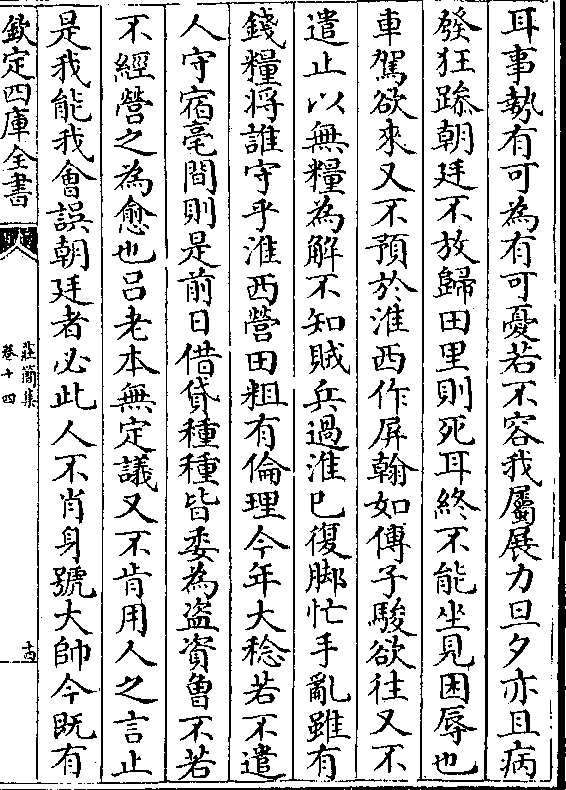 耳事勢有可為有可憂若不容我屬展力旦夕亦且病
發狂跡朝廷不放歸田里則死耳終不能坐見困辱也
車駕欲來又不預於淮西作屏翰如傅子駿欲往又不
遣止以無糧為解不知賊兵過淮已復脚忙手亂雖有
錢糧將誰守乎淮西營田粗有倫理今年大稔若不遣
人守宿亳間則是前日借貸種種皆委為盜資曾不若
不經營之為愈也吕老本無定議又不肯用人之言止
是我能我會誤朝廷者必此人不肖身號大帥今既有
欽定四庫全書
莊簡集
卷十四
十四